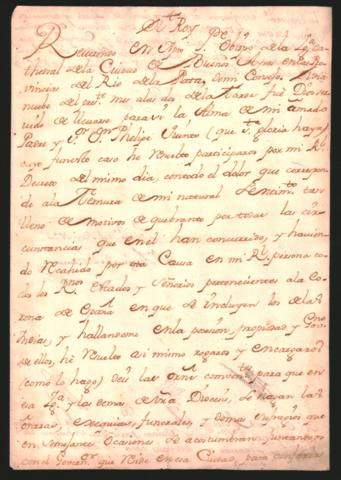 El Rey
Reverendo en Cristo P. Obispo de la Yg.ª Ca
thedral de la Ciudad de Buenos Ayres en las Pro
vincias del Rio de la Plata, de mi Consejo. El dia
nueve del a las dos de la tarde fué Dios ser
vido de llevarse para si la Alma de mi amado
Padre y S.r D.n Phelipe Quinto (que S.ta gloria haya)
cuyo funesto caso he resuelto participaros por mi R.l
Decreto del mismo dia, con todo el dolor que correspon
de ala ternura de mi natural sentim.to tan
lleno de motivos de quebranto por todas las cir
cunstancias que enel han concurrido, y havien
do recahido por esta Causa en mi R.l persona to
dos los R.nos Estados y Señorios pertenecientes ala Co
rona de España en que se incluyen los de las
Indias, y hallandome enla posesion, propiedad y Gov.no
de ellos, hè resuelto asi mismo rogaros y encargaros
(como lo hago) deis las orn.s conven.tes para que en
esa Yg.ª y las demas de esa Diocesi, se hagan las
honrras, exequias, funerales, y demas sufragios que
en semejantes ocasiones se acostumbran, juntandoos
con el Governad.r que reside en esa Ciudad, para conferir